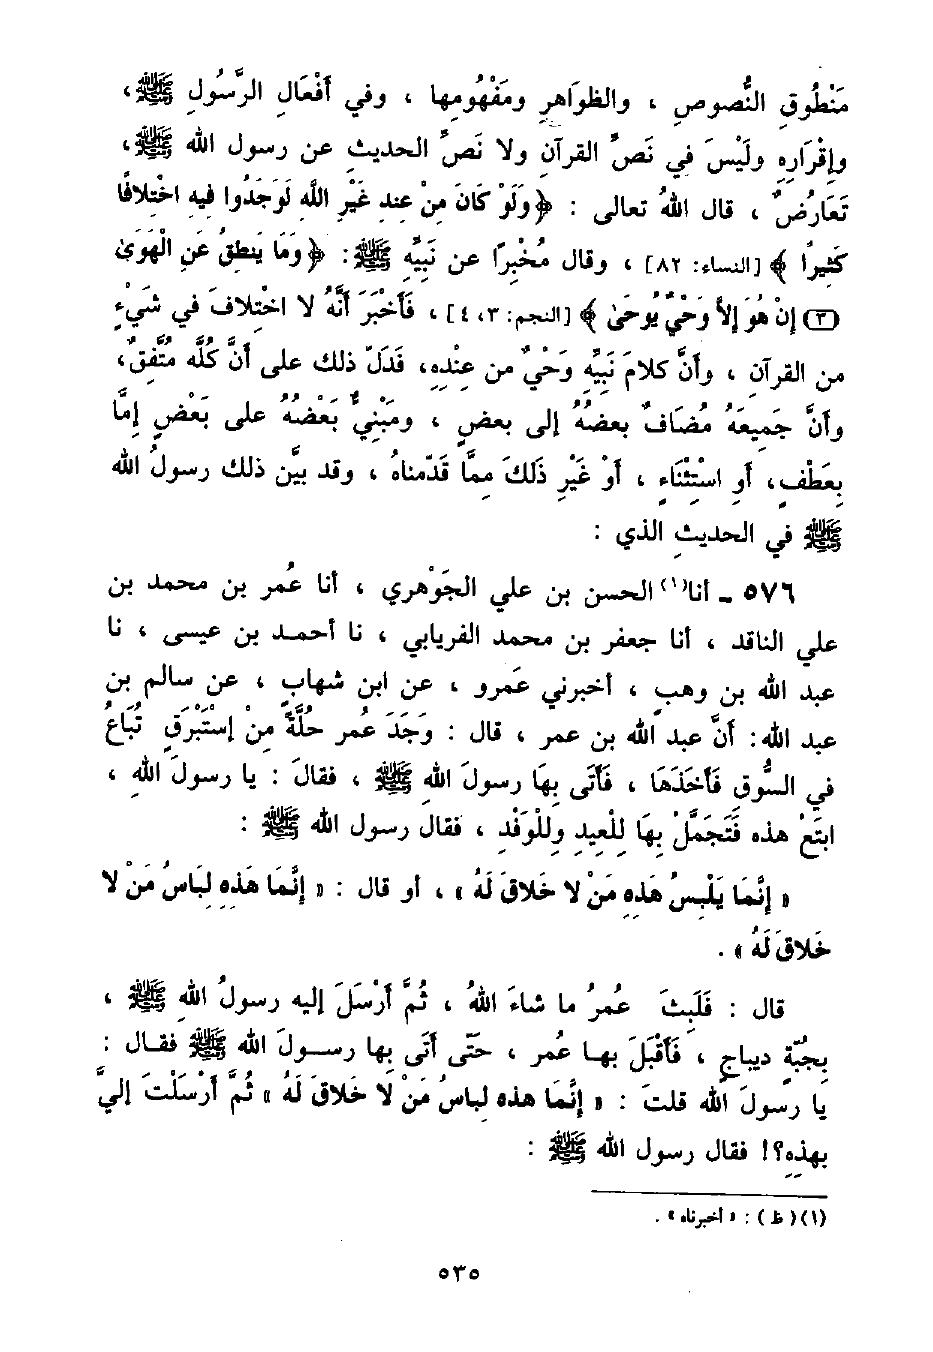 مَنْطُوقِ النُّصوصِ ، والظواهرِ ومَفْهُومِها ، وفي أَفْعَالِ الرَّسُولِ ﷺ ،
وإِقْرَارِهِ ولَيْسَ في نَصِّ القرآنِ ولا نَصِّ الحديثِ عن رسول الله ﷺ ،
تَعَارُضٌ ، قال اللهُ تعالى : ﴿وَلَوْ كَانَ مِنْ عِندِ غَيْرِ اللَّهِ لَوَجَدُوا فِيهِ اخْتِلَافًا
كَثِيرًا ﴾ [النساء: ٨٢] ، وقال مُخْبِرًا عن نَبِيِّه ﷺ : ﴿وَمَا يَنطِقُ عَنِ الْهَوَىٰ
(٣) إِنْ هُوَ إِلاَّ وَحْيٌ يُوحَىٰ ﴾ [النجم: ٣، ٤] ، فَأَخْبَرَ أَنَّهُ لا اختْلافَ في شَيْءٍ
من القرآنِ ، وأنَّ كلامَ نَبِيِّه وَحْيٌ من عِنْدِهِ، فَدَلّ ذلك على أنَّ كُلَّه مُتَّفِقٌ،
وأنَّ جَمِيعَهُ مُضَافٌ بعضُهُ إلى بعضٍ ، ومَبْنِيٌّ بَعْضُهُ على بَعْضٍ إمَّا
بِعَطْفٍ، أو اسْتِثْنَاءٍ ، أوْ غَيْرِ ذَلكَ مِمَّا قَدّمناهُ ، وقد بيَّن ذلك رسولُ الله
ﷺ في الحديثِ الذي :
٥٧٦ ـ أنا(١) الحسن بن علي الجَوْهري ، أنا عُمر بن محمد بن
علي الناقد ، أنا جعفر بن محمد الفريابي ، نا أحمـد بن عيسى ، نا
عبد الله بن وهبٍ ، أخبرني عَمرو ، عن ابن شهابٍ ، عن سالم بن
عبد الله: أنَّ عبد الله بن عمر ، قال : وَجَدَ عُمر حُلَّةً مِنْ إسْتَبْرَقٍ تُبَاعُ
في السُّوق فَأَخَذَهَا ، فَأَتَى بِهَا رسولَ اللهِ ﷺ ، فقالَ : يا رسولَ اللهِ ،
ابتَعْ هذه فَتَجَمَّلْ بِهَا لِلْعِيدِ ولِلْوَفْدِ ، فقال رسول الله ﷺ :
« إِنَّمَا يَلْبِسُ هَذِهِ مَنْ لا خَلاقَ لَهُ » ، أو قال : « إنَّمَا هَذِهِ لِبَاسُ مَنْ لا
خَلاقَ لَهُ » .
قال : فَلَبِثَ عُمرُ ما شاءَ اللهُ ، ثُمَّ أرْسَلَ إليه رسولُ اللهِ ﷺ ،
بِجُبّةِ ديباجٍ ، فَأَقْبَلَ بهـا عمر ، حتّى أتَى بها رسـولَ الله ﷺ فقـال :
يا رسولَ الله قلتَ : « إنَّمَا هذه لِباسُ مَنْ لا خلاقَ لَهُ » ثُمَّ أرْسَلْتَ إليَّ
بهذِهِ؟! فقال رسول الله ﷺ :
(١) (ظ) : « أخبرناه » .
٥٣٥